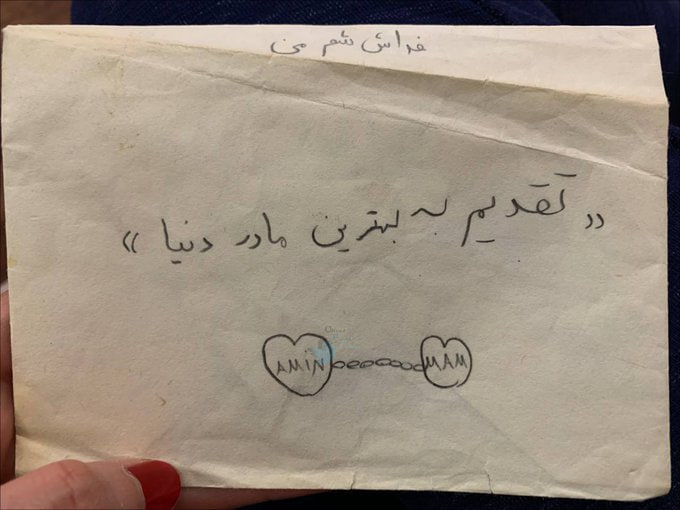 فداش شم من
« تقدیم به بهترین مادر دنیا »
AMIN MAM